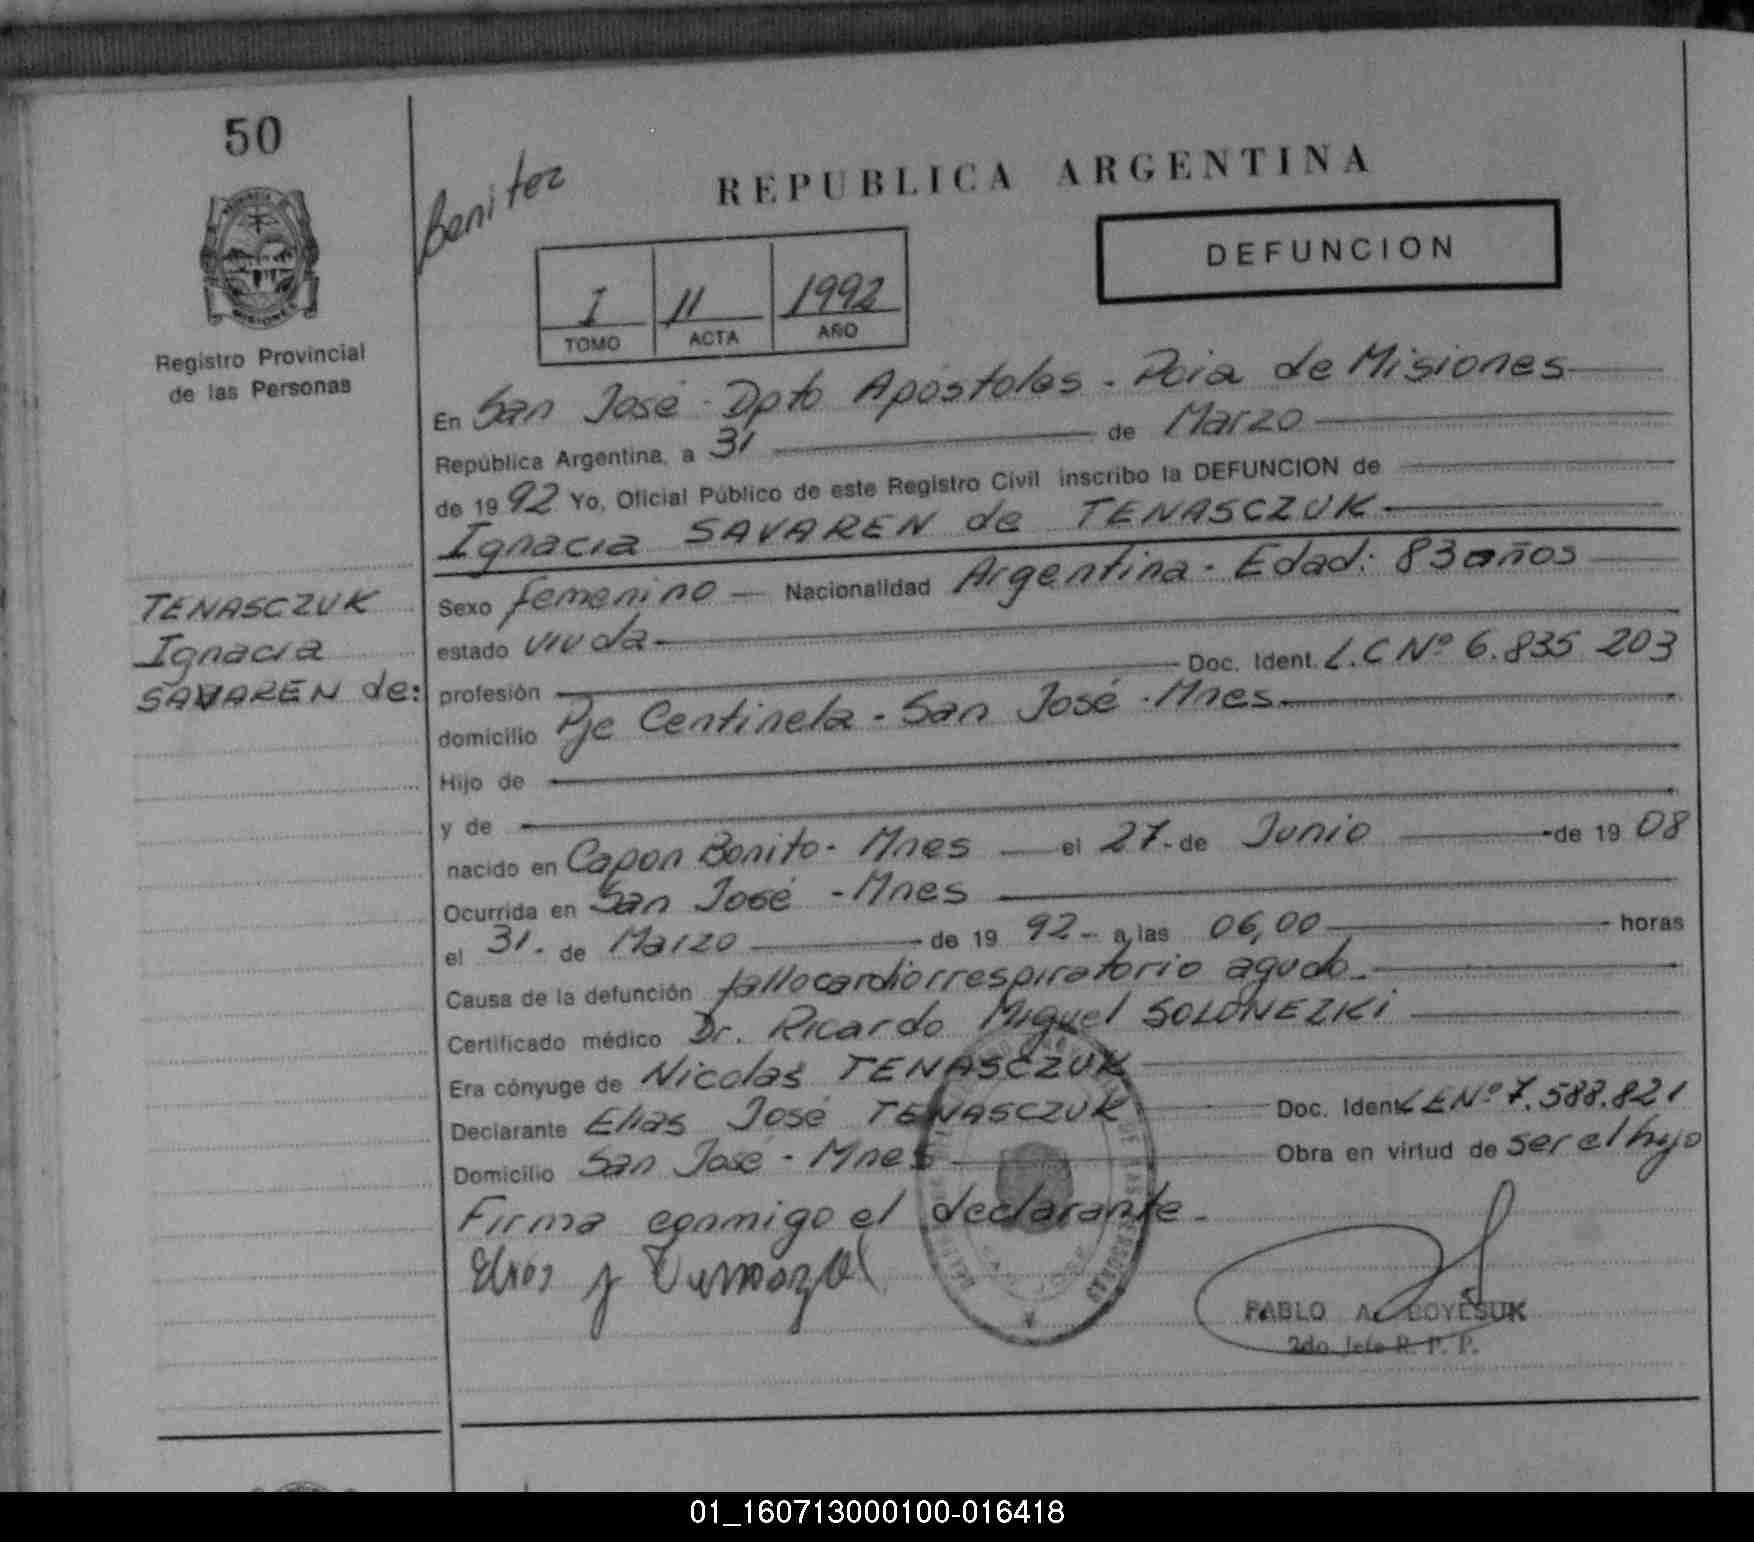 50
Benitez
REPUBLICA ARGENTINA
DEFUNCION
I 11 1992
TOMO ACTA AÑO
Registro Provincial
de las Personas
En San José - Dpto Apóstoles - Pcia de Misiones
República Argentina, a 31 de Marzo
de 1992 Yo, Oficial Público de este Registro Civil inscribo la DEFUNCION de
Ignacia SAVAREN de TENASCZUK
TENASCZUK
Ignacia
SAVAREN de:
Sexo femenino Nacionalidad Argentina - Edad: 83 años
estado viuda
profesión Doc. Ident. L.C Nº 6.835 203
domicilio Pje Centinela - San José - Mnes
Hijo de
y de
nacido en Capon Bonito - Mnes el 27 - de Junio de 1908
Ocurrida en San José - Mnes
el 31 - de Marzo de 1992 - a las 06,00 horas
Causa de la defunción fallocardiorrespiratorio agudo.
Certificado médico Dr. Ricardo Miguel SOLONEZKI
Era cónyuge de Nicolas TENASCZUK
Declarante Elias José TENASCZUK Doc. Ident LE Nº 7.588.821
Domicilio San José - Mnes Obra en virtud de ser el hijo
Firma conmigo el declarante.
PABLO A. BOYESUK
2do Jefe R. P. P.
01_160713000100-016418